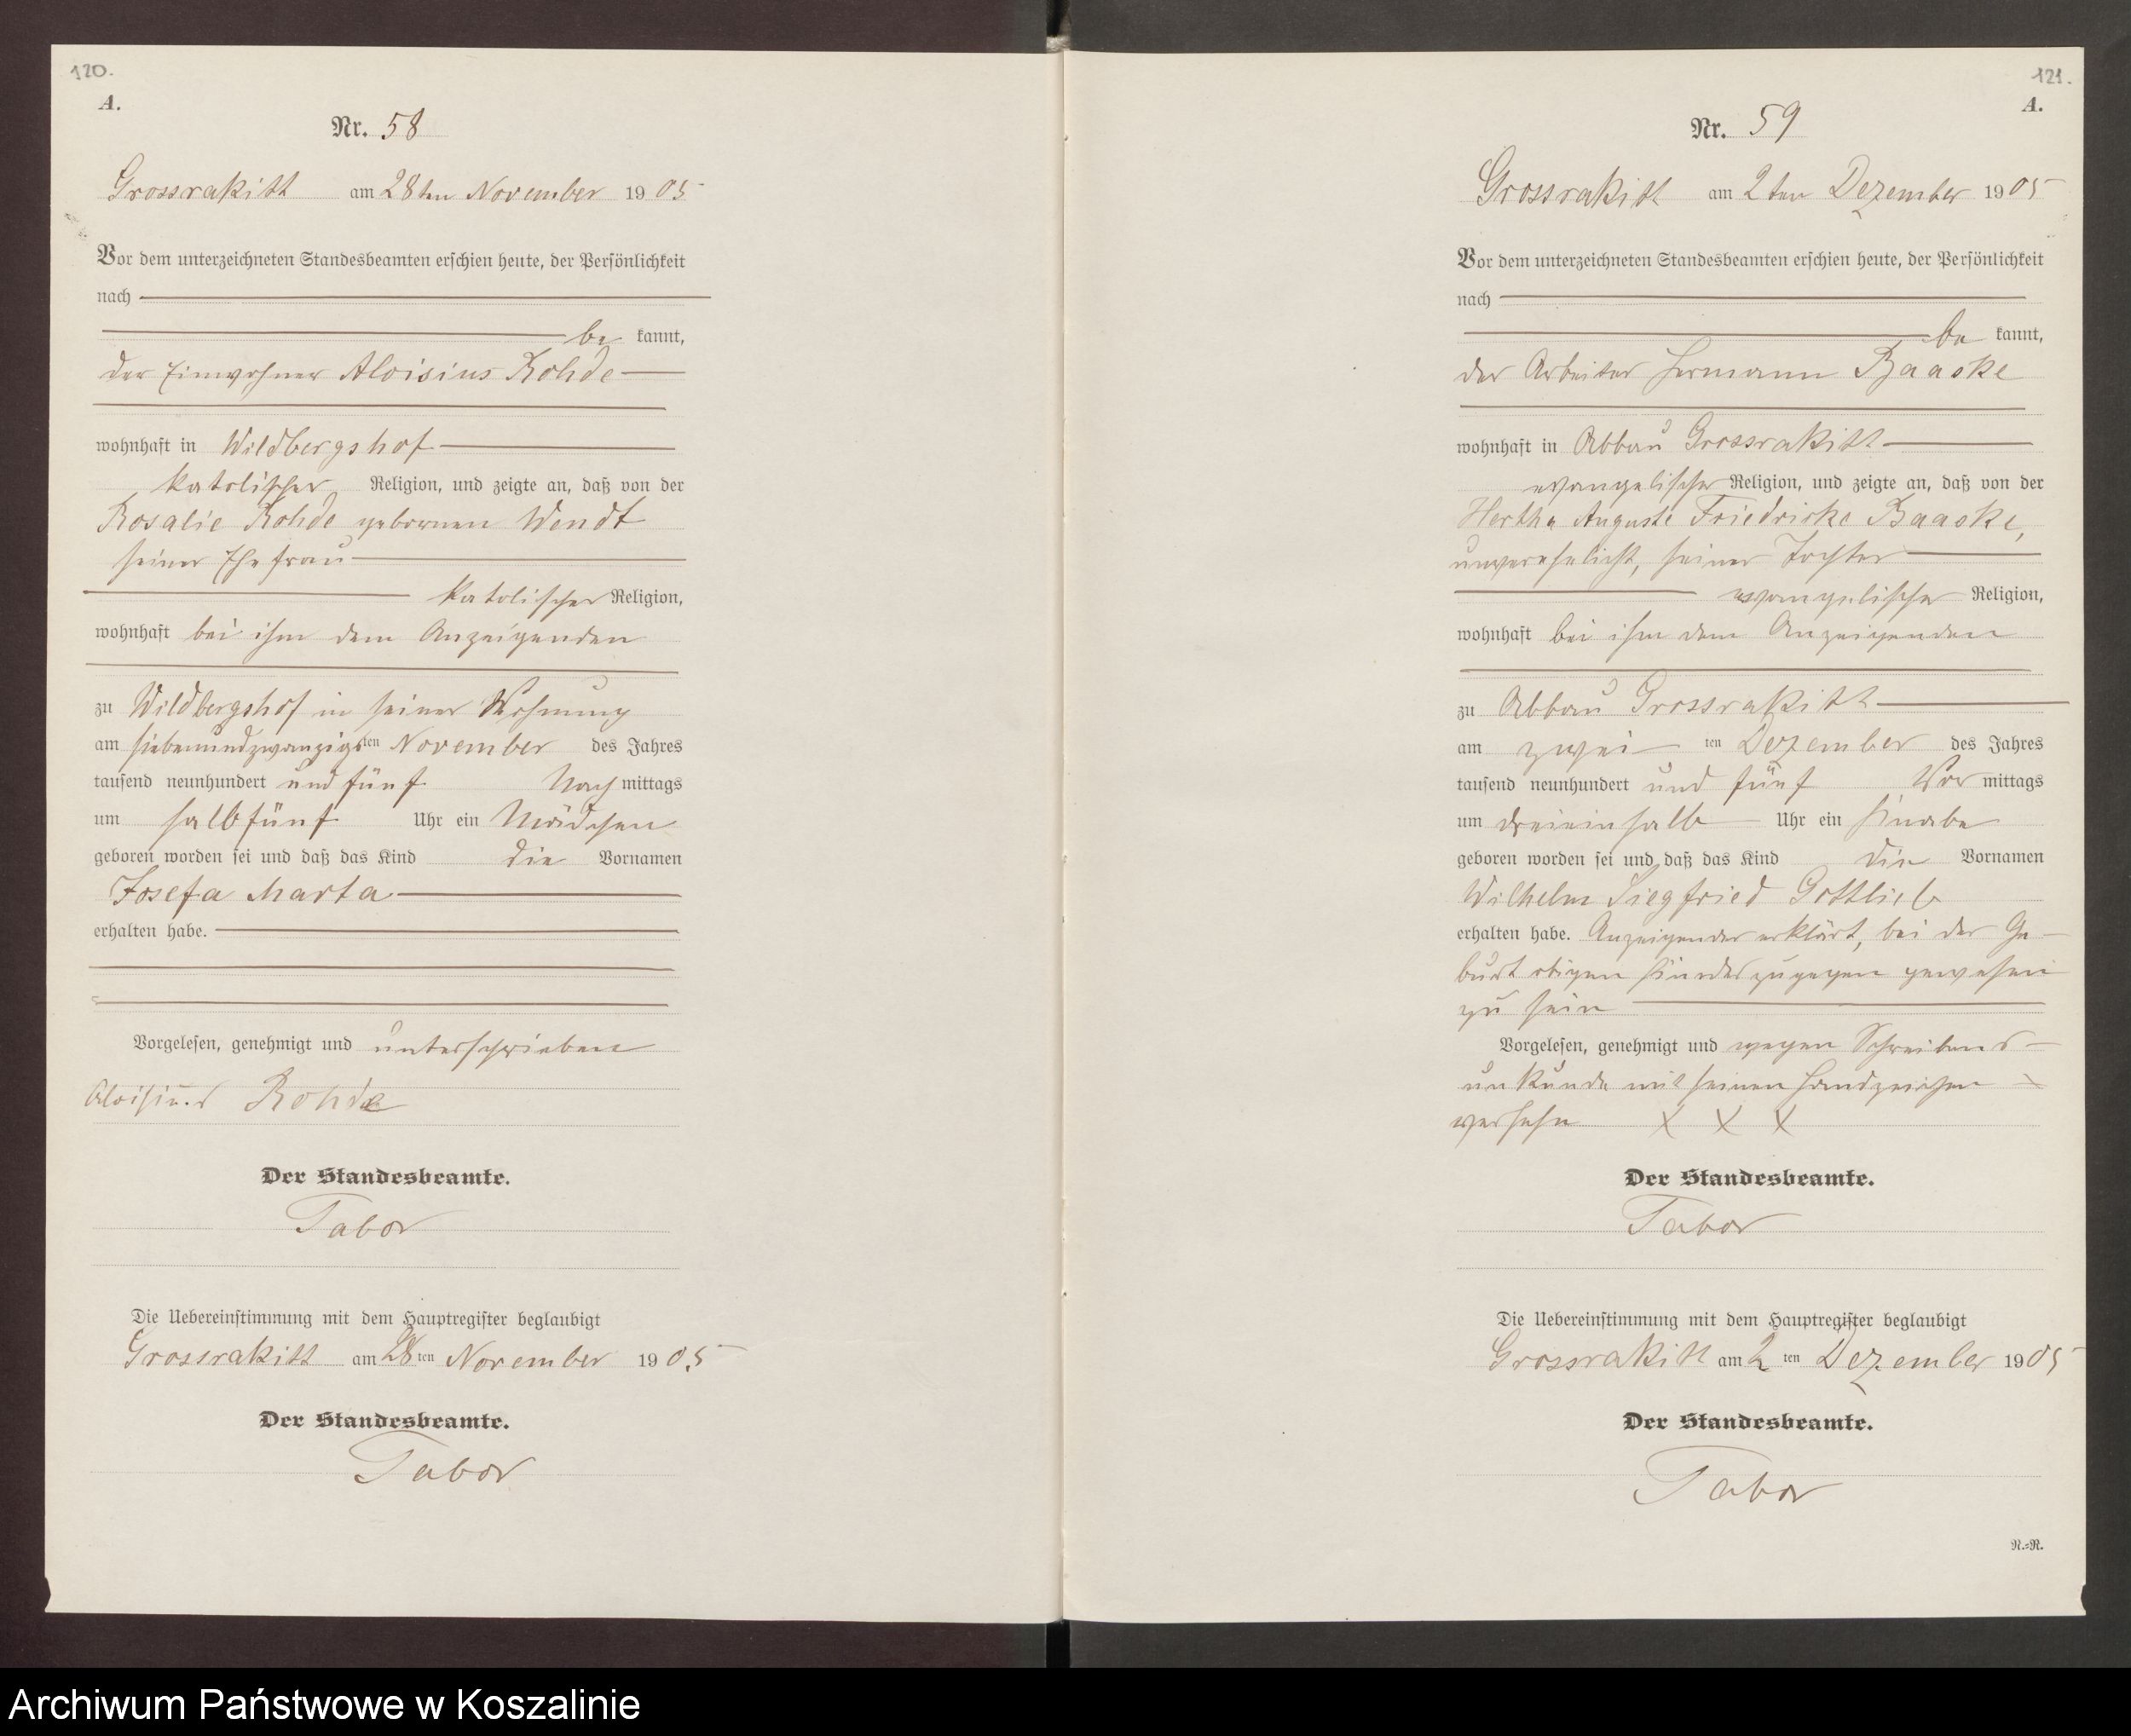 120.
A.
Nr. 58
Grossrakitt am 28ten November 1905
Vor dem unterzeichneten Standesbeamten erschien heute, der Persönlichkeit
nach
be kannt,
der Einwohner Aloisius Rohde
wohnhaft in Wildbergshof
katolischer Religion, und zeigte an, daß von der
Rosalie Rohde gebornen Wendt
seiner Ehefrau
katolischer Religion,
wohnhaft bei ihm dem Anzeigenden
zu Wildbergshof in seiner Wohnung
am siebenundzwanzigsten November des Jahres
tausend neunhundert und fünf Nachmittags
um halbfünf Uhr ein Mädchen
geboren worden sei und daß das Kind die Vornamen
Josefa Marta
erhalten habe.
Vorgelesen, genehmigt und unterschrieben
Aloisius Rohde
Der Standesbeamte.
Tabor
Die Uebereinstimmung mit dem Hauptregister beglaubigt
Grossrakitt am 28ten November 1905
Der Standesbeamte.
Tabor
121.
A.
Nr. 59
Grossrakitt am 2ten Dezember 1905
Vor dem unterzeichneten Standesbeamten erschien heute, der Persönlichkeit
nach
be kannt,
der Arbeiter Hermann Baaske
wohnhaft in Abbau Grossrakitt
evangelischer Religion, und zeigte an, daß von der
Hertha Auguste Friedricke Baaske,
unverehelicht, seiner Tochter
evangelischer Religion,
wohnhaft bei ihm dem Anzeigenden
zu Abbau Grossrakitt
am zwei ten Dezember des Jahres
tausend neunhundert und fünf Vormittags
um dreieinhalb Uhr ein Knabe
geboren worden sei und daß das Kind die Vornamen
Wilhelm Siegfried Gottlieb
erhalten habe. Anzeigender erklärt, bei der Ge-
burt obigen Kindes zugegen gewesen
zu sein
Vorgelesen, genehmigt und wegen Schreibens-
unkunde mit seinen Handzeichen
versehn X X X
Der Standesbeamte.
Tabor
Die Uebereinstimmung mit dem Hauptregister beglaubigt
Grossrakitt am 2ten Dezember 1905
Der Standesbeamte.
Tabor
R.=R.
Archiwum Państwowe w Koszalinie